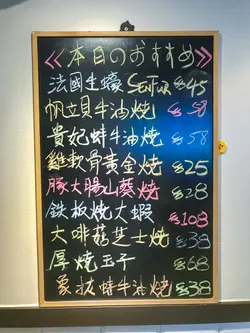 《本日のおすすめ》
法國生蠔 SENTUR $45
帆立貝牛油燒 $58
貴妃蚌牛油燒 $58
雞軟骨黃金燒 $25
豚大腸山葵燒 $28
鉄板燒大蝦 $108
大啡菇芝士燒 $38
厚燒玉子 $68
象拔蚌牛油燒 $38